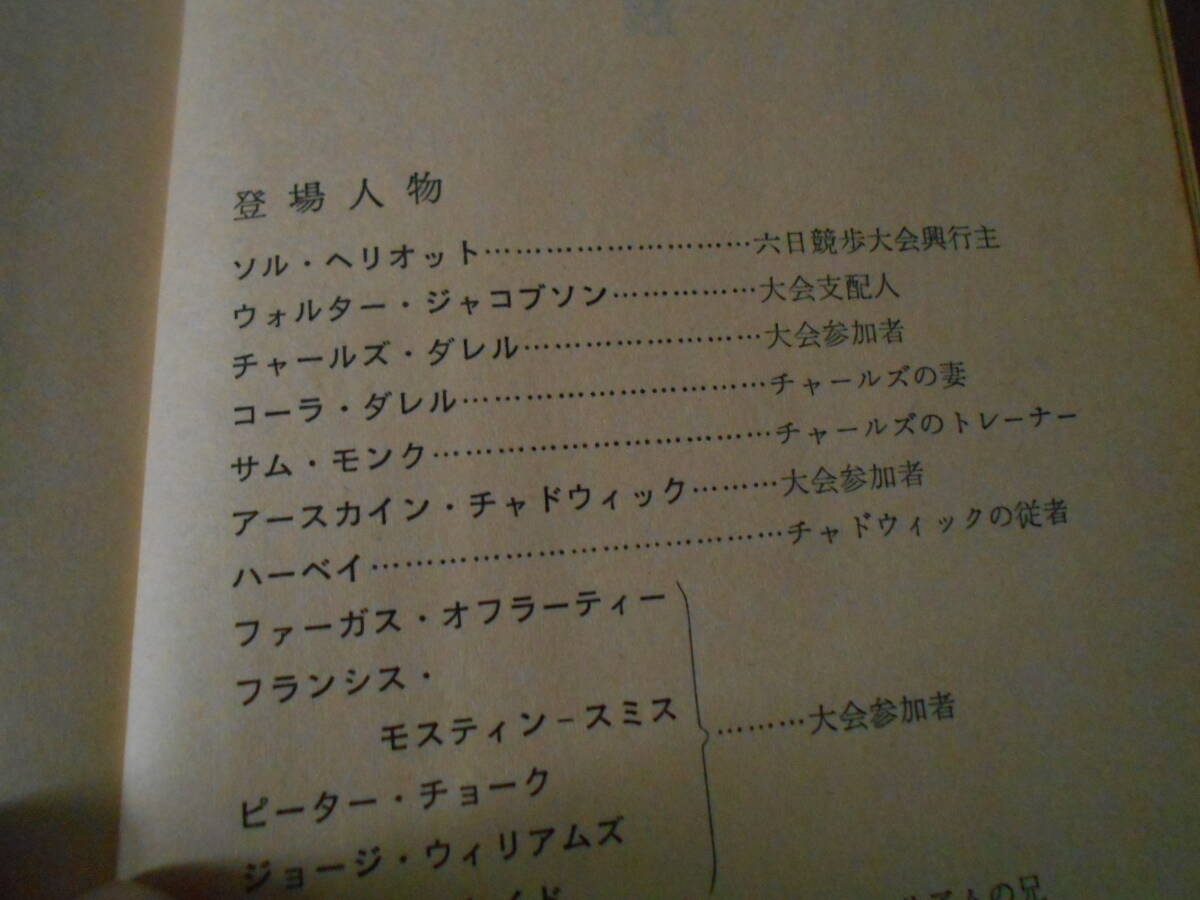 登場人物
ソル・ヘリオット………………………六日競歩大会興行主
ウォルター・ジャコブソン……………大会支配人
チャールズ・ダレル……………………大会参加者
コーラ・ダレル…………………………チャールズの妻
サム・モンク……………………………チャールズのトレーナー
アースカイン・チャドウィック………大会参加者
ハーベイ…………………………………チャドウィックの従者
ファーガス・オフラーティー
フランシス・
モスティン-スミス
………大会参加者
ピーター・チョーク
ジョージ・ウィリアムズ
の兄